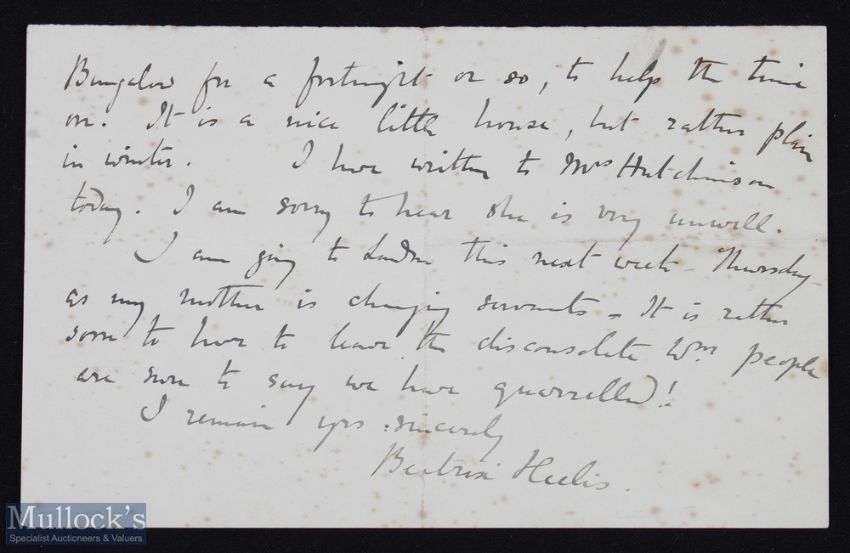 Bungalow for a fortnight or so, to help the time
on. It is a nice little house, but rather plain
in winter. I have written to Mrs Hutchinson
today. I am sorry to hear she is very unwell.
I am going to London this next week - Thursday -
as my mother is changing servants - It is rather
soon to have to leave the disconsolate Wm people
are sure to say we have quarrelled!
I remain yrs sincerely
Beatrix Heelis.
Mullock's
Specialist Auctioneers & Valuers